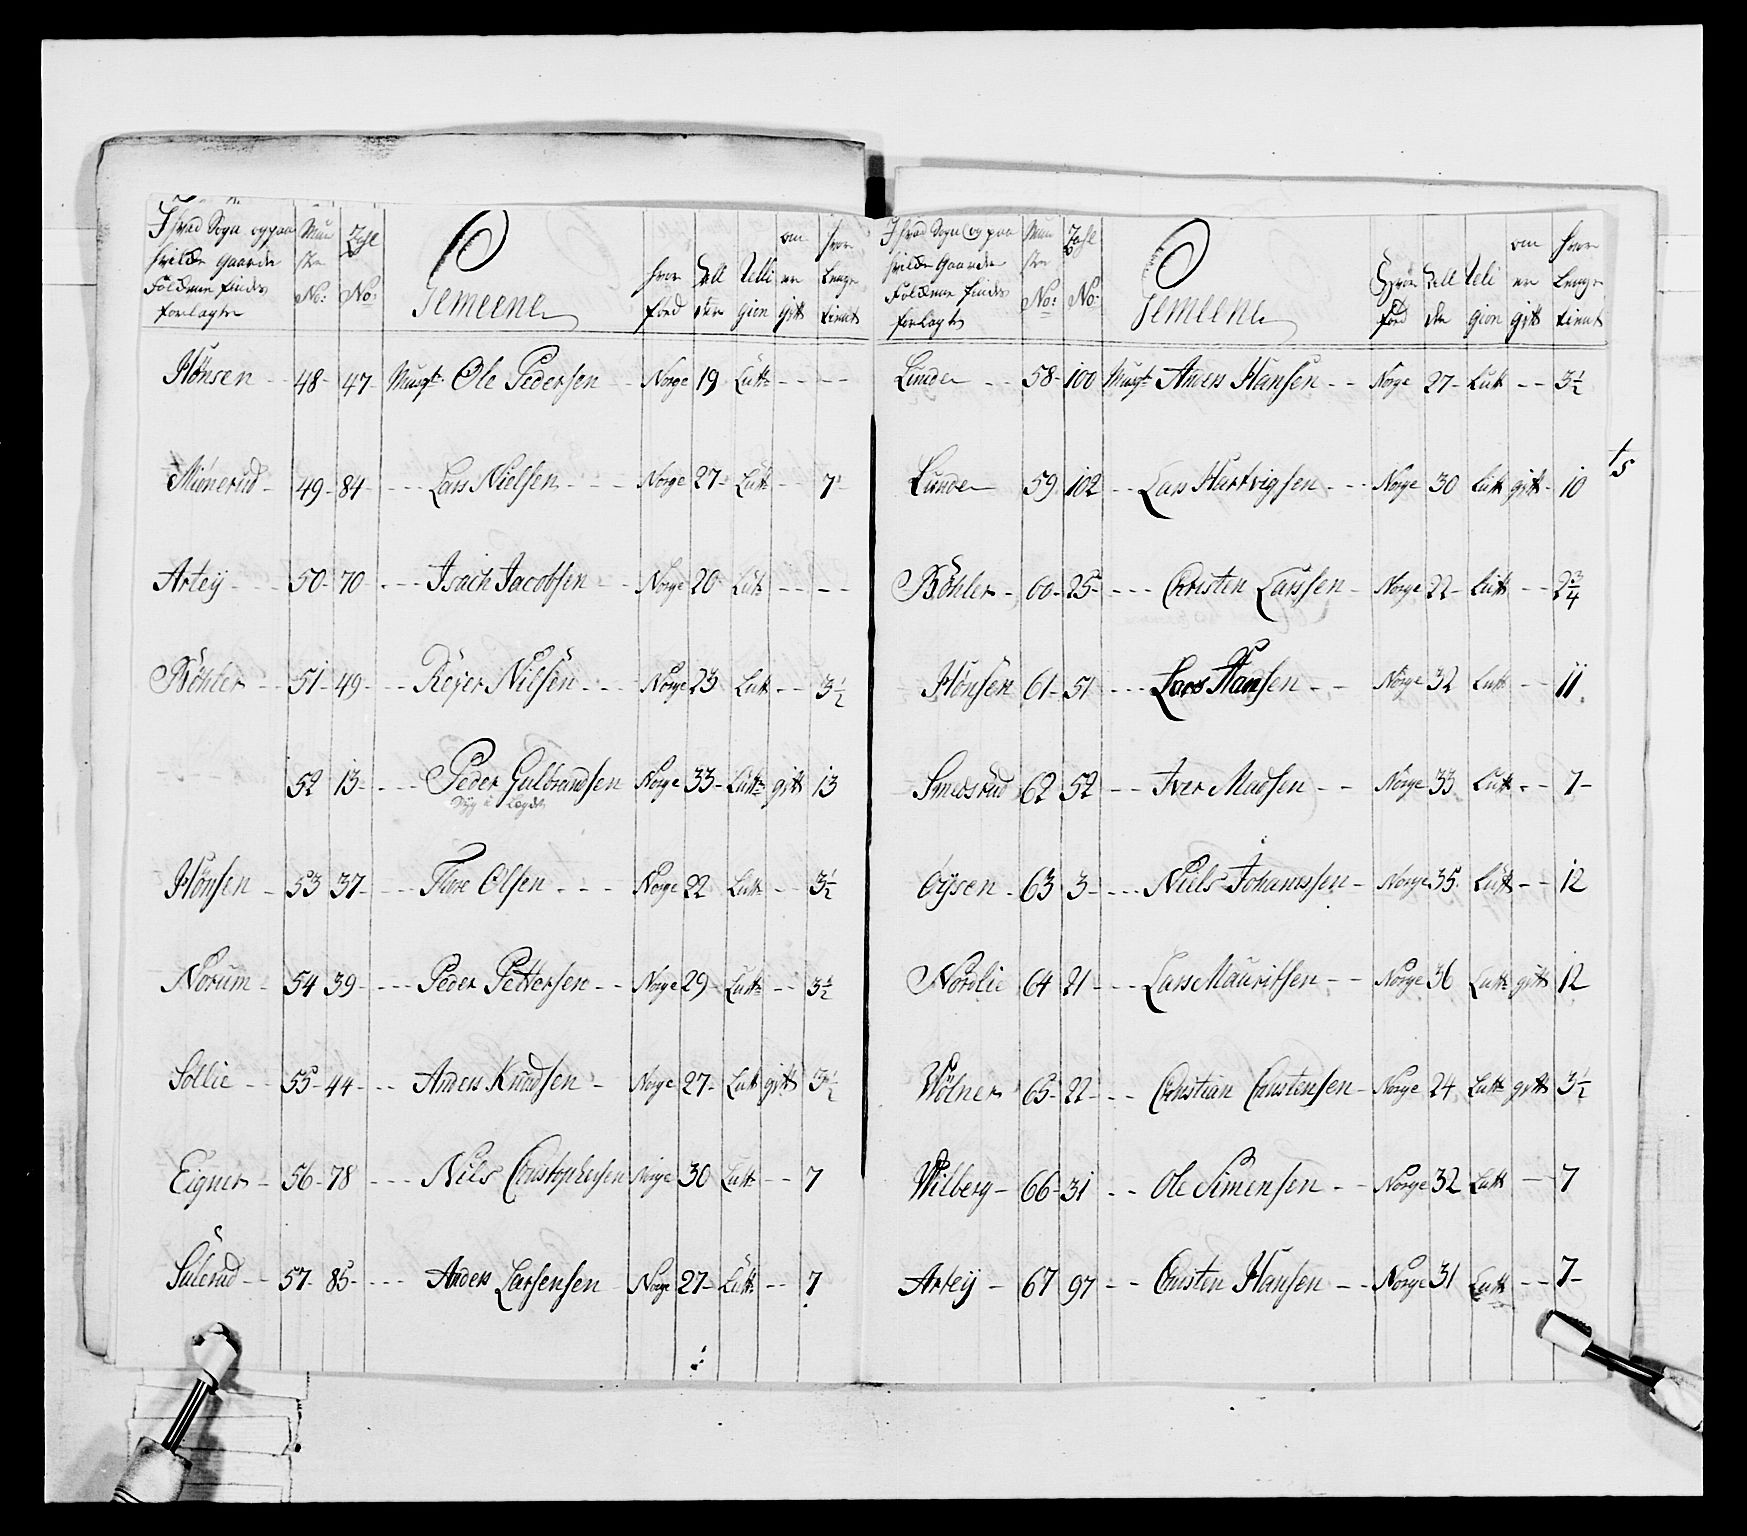 I hvad Sogn og paa hvilke Gaarde Folkene findes forlagte | Mun stre No: | Zahl No: | Gemeene | hvor föd | All der | Reli gion | om er gift | hvor lenge tient
Hönsen - 48 - 47 - Musqt: Ole Pedersen - Norge 19 Luth: - - - -
Miönerud - 49 - 84 - - - Lars Nielsen - - - Norge 27 - Luth - - 7
Arteÿ - - - 50 - 70 - - - Isach Jacobsen - - Norge 20 Luth - - - -
Böhler - - 51 - 49 - - - Reÿer Nilsen - - - Norge 23 Luth - - 3½
52 13 - - - Peder Gulbrandsen Norge 33 - Luth: gift 13
Sÿg i
Hönsen - 53 37 - - - Thore Olsen - - - Norge 22 Luth - - 3½
Norum - 54 39 - - - Peder Pettersen - - Norge 29 Luth - - 3½
Sollie - - 55 - 44 - - - Anders Knudsen - Norge 27 - Luth gift 3½
Eigner - 56 - 78 - - - Niels Christophersen Norge 30 Luth - - 7
Sulerud - - 57 - 85 - - - Anders Larsensen - Norge 27 - Luth - - 7
I hvad Sogn og paa hvilke Gaarde Folkene findes forlagte | Mun stre No: | Zahl No: | Gemeene | Hvor föd | All der | Reli gion | om er gift | hvor lenge tient
Lunde - - 58 - 100 Musqt: Anders Hansen - - Norge 27 - Luth - - 3½
Lunde - 59 102 - - Lars Hartvigsen - - - Norge 30 Luth gift - 10
Böhler - 60 - 25 - - - Christen Larssen - Norge 22 - Luth - - 2¾
Hönsen 61 - 51 - - - Lars Hansen - - Norge 32 Luth - - 11
Smedsrud 62 52 - - Iver Madsen - - Norge 33 Luth - - 7 -
Öÿsen - 63 3 - - - Niels Johannssen - Norge 35 Luth - - 12
Nordlie 64 21 - - - Lars Mauritsen - - Norge 36 Luth gift 12
Wölner 65 - 22 - - - Christian Christensen - Norge 24 Luth gift 3½
Wilberg - 66 - 31 - - Ole Simensen - - Norge 32 Luth - - 7
Arteÿ - 67 97 - - Christen Hansen - - Norge 31 Luth - - 7 -